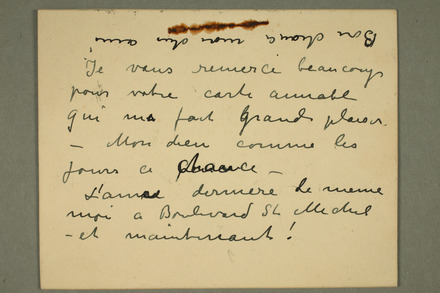 Bon chance mon cher ami
Je vous remerci beaucoup
pour votre carte aimabl
qui ma fait grands plaisir.
– Mon dieu comme les
jours ce chance –
L'anne derniere de meme
moi a Boulevard St Michel
– et maintenant !